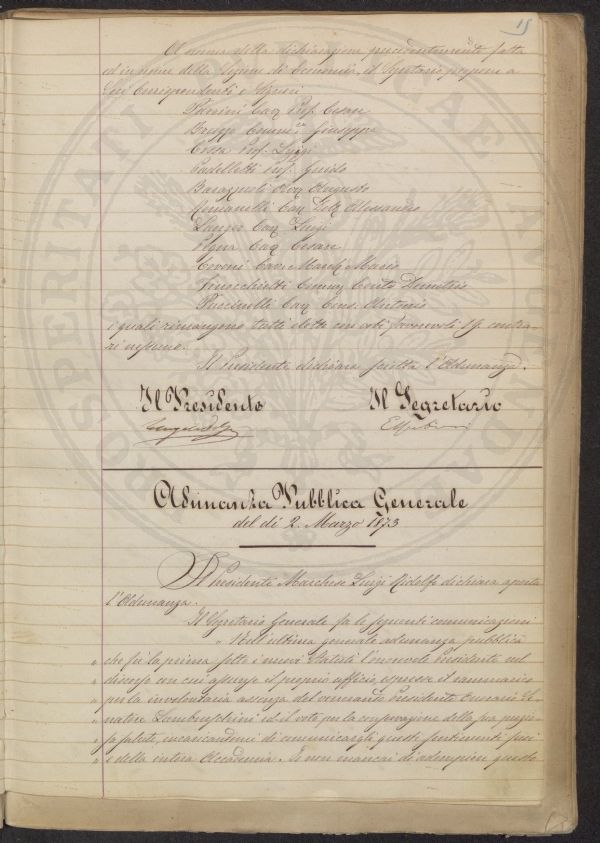 15
A norma della dichiarazione precedentemente fatta
ed in nome della Sezione di Economia, il Segretario propone a
Soci Corrispondenti i Signori
Parrini Cav. Prof. Cesare
Comm.re Giuseppe
Cossa Prof. Luigi
Padelletti Prof. Guido
Barazzuoli Avv. Augusto
Romanelli Cav. Alessandro
Cav. Luigi
Cav. Cesare
Covoni Cav. March. Mario
Finocchietti Comm. Conte Demetrio
Puccinelli Cav. Antonio
i quali rimangono tutti eletti con voti favorevoli 19. contra-
ri nessuno.
Il Presidente dichiara sciolta l'Adunanza.
Il Presidente Il Segretario
Adunanza Pubblica Generale
del dì 2. Marzo 1873
Il Presidente Marchese Luigi Ridolfi dichiara aperta
l'Adunanza.
Il Segretario Generale fa le seguenti comunicazioni
„ Nell'ultima generale adunanza pubblica
„ che fù la prima sotto i nuovi Statuti l'onorevole Presidente nel
„ discorso con cui assunse il proprio ufficio, espresse il rammarico
„ per la involontaria assenza del venerando Presidente Onorario Se-
„ natore Lambruschini ed il voto per la conservazione della sua prezio-
„ sa salute, incaricandomi di comunicargli questi sentimenti suoi
„ e della intera Accademia. Io non mancai di adempiere questo
PROSPERITATI PUBLICAE AUGENDAE